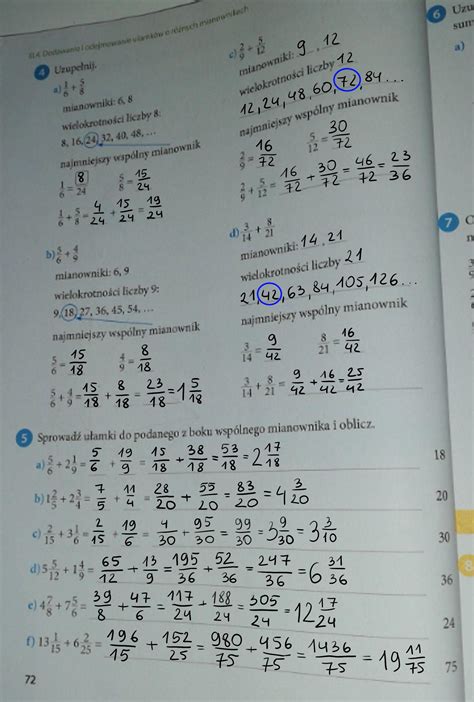 II.4. Dodawanie i odejmowanie ułamków o różnych mianownikach
4 Uzupełnij.
a) 1/6 + 5/8
mianowniki: 6, 8
wielokrotności liczby 8:
8, 16, 24, 32, 40, 48, ...
najmniejszy wspólny mianownik
1/6 = 8/24 5/8 = 15/24
1/6 + 5/8 = 4/24 + 15/24 = 19/24
b) 5/6 + 4/9
mianowniki: 6, 9
wielokrotności liczby 9:
9, 18, 27, 36, 45, 54, ...
najmniejszy wspólny mianownik
5/6 = 15/18 4/9 = 8/18
5/6 + 4/9 = 15/18 + 8/18 = 23/18 = 1 5/18
c) 2/9 + 5/12
mianowniki: 9, 12
wielokrotności liczby 12
12, 24, 48, 60, 72, 84...
najmniejszy wspólny mianownik
2/9 = 16/72 5/12 = 30/72
2/9 + 5/12 = 16/72 + 30/72 = 46/72 = 23/36
d) 3/14 + 8/21
mianowniki: 14, 21
wielokrotności liczby 21
21, 42, 63, 84, 105, 126...
najmniejszy wspólny mianownik
3/14 = 9/42 8/21 = 16/42
3/14 + 8/21 = 9/42 + 16/42 = 25/42
5 Sprowadź ułamki do podanego z boku wspólnego mianownika i oblicz.
a) 5/6 + 2 1/9 = 5/6 + 19/9 = 15/18 + 38/18 = 53/18 = 2 17/18 18
b) 1 2/5 + 2 3/4 = 7/5 + 11/4 = 28/20 + 55/20 = 83/20 = 4 3/20 20
c) 2/15 + 3 1/6 = 2/15 + 19/6 = 4/30 + 95/30 = 99/30 = 3 9/30 = 3 3/10 30
d) 5 5/12 + 1 4/9 = 65/12 + 13/9 = 195/36 + 52/36 = 247/36 = 6 31/36 36
e) 4 7/8 + 7 5/6 = 39/8 + 47/6 = 117/24 + 188/24 = 305/24 = 12 17/24 24
f) 13 1/15 + 6 2/25 = 196/15 + 152/25 = 980/75 + 456/75 = 1436/75 = 19 11/75 75
72
6
a)
7
8